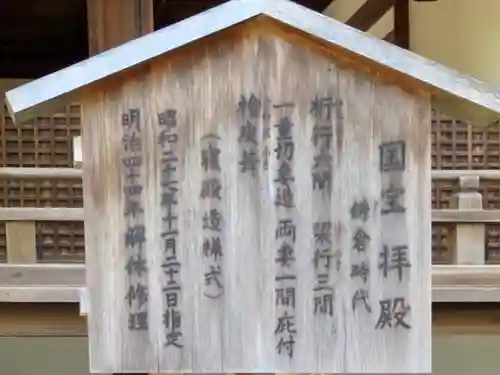 国宝 拝殿
鎌倉時代
桁行六間 梁行三間
一重切妻造 両妻一間庇付
檜皮葺
(割殿造様式)
昭和二十七年十一月二十二日指定
明治四十四年解体修理